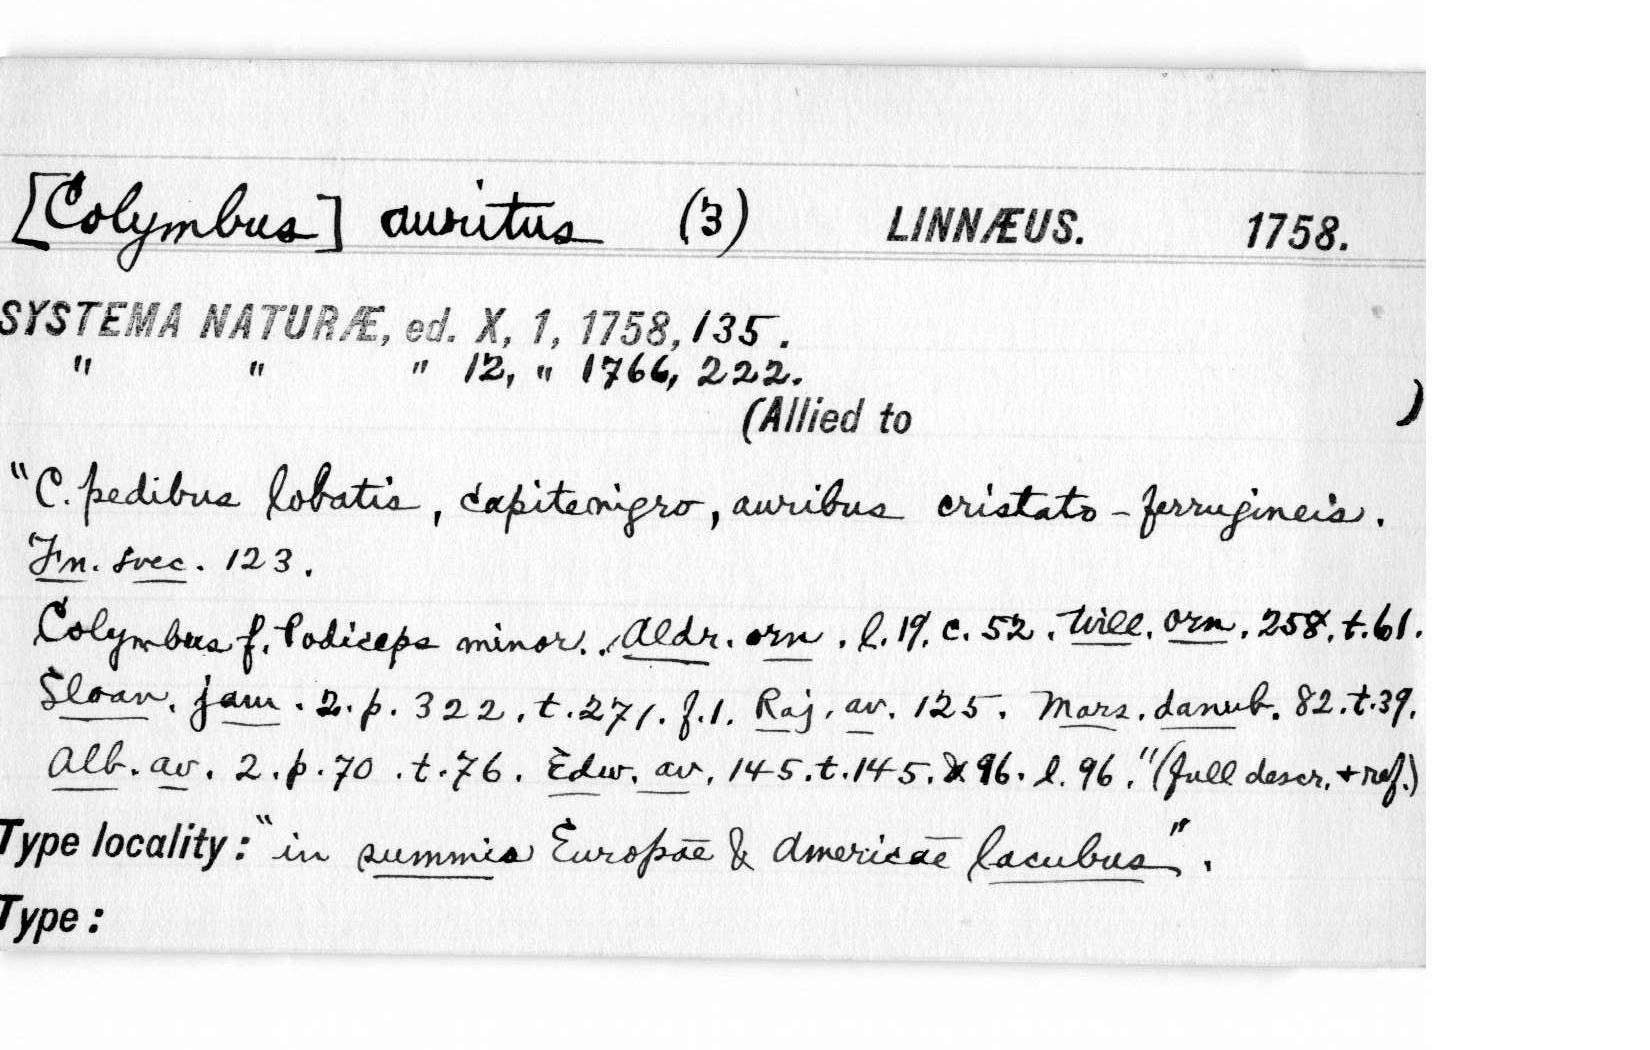 [Colymbus] auritus (3) LINNÆUS. 1758.
SYSTEMA NATURÆ, ed. X, 1, 1758, 135.
" " " 12, " 1766, 222.
(Allied to )
"C. pedibus lobatis, capite nigro, auribus cristato-ferrugineis.
Fn. svec. 123.
Colymbus f. Podiceps minor. Aldr. orn. l. 19. c. 52. Will. orn. 258. t. 61.
Sloan. jam. 2. p. 322. t. 271. f. 1. Raj. av. 125. Mars. danub. 82. t. 39.
Alb. av. 2. p. 70. t. 76. Edw. av. 145. t. 145. & 96. l. 96." (full descr. + ref.)
Type locality: "in summis Europae & Americae lacubus".
Type: